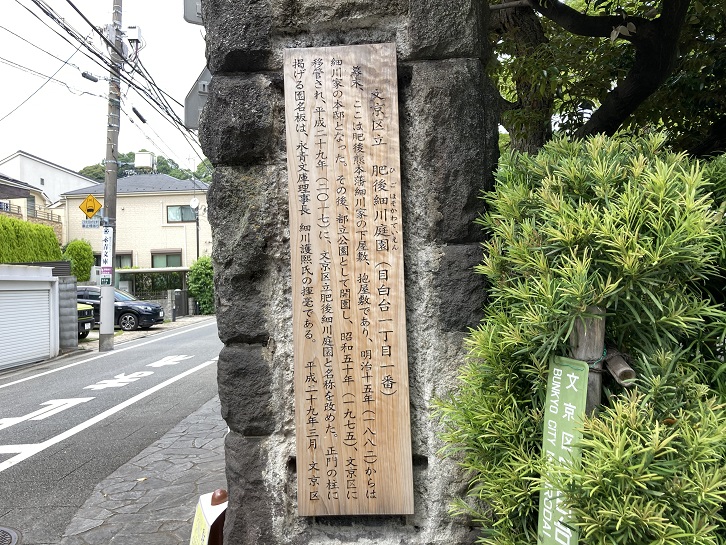 文京区立 肥後細川庭園（目白台一丁目一番）
ひごほそかわていえん
幕末、ここは肥後熊本藩細川家の下屋敷、抱屋敷であり、明治十五年（一八八二）からは
細川家の本邸となった。その後、都立公園として開園し、昭和五十年（一九七五）、文京区に
移管され、平成二十九年（二〇一七）に、文京区立肥後細川庭園と名称を改めた。正門の柱に
掲げる園名板は、永青文庫理事長 細川護熙氏の揮毫である。 平成二十九年三月 文京区
永青文庫
文京区
BUNKYO CITY